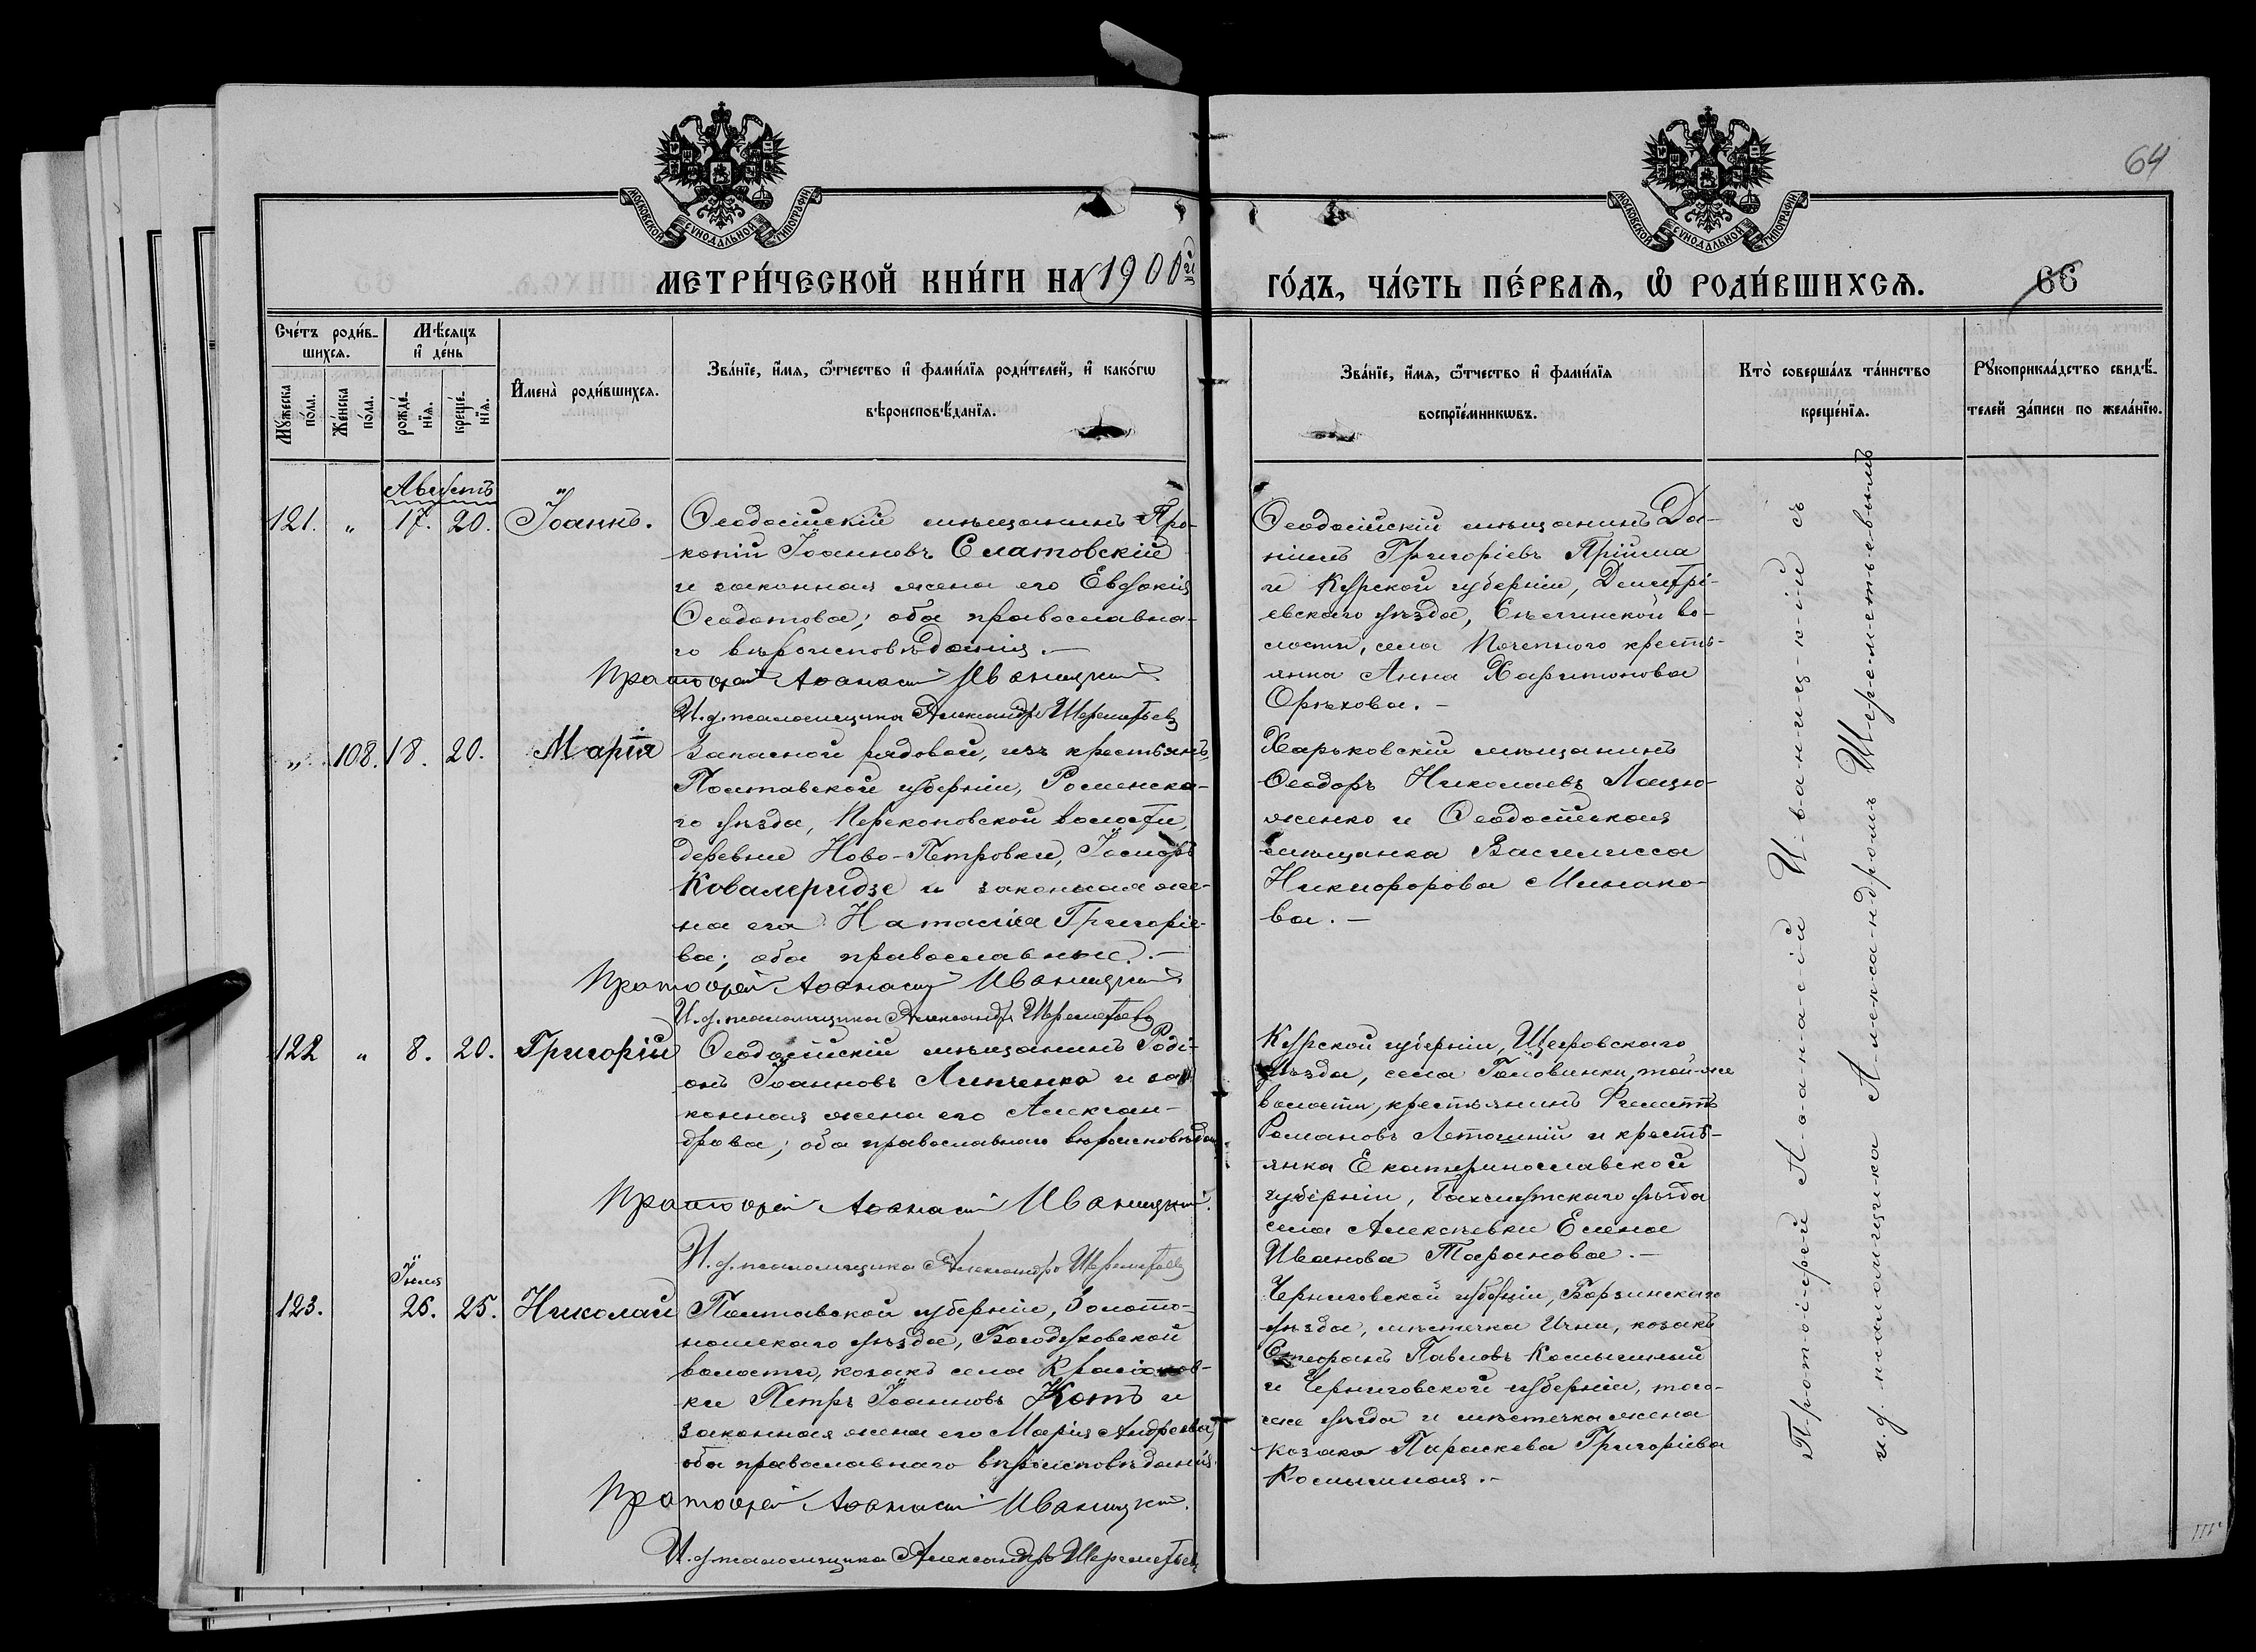 64
МОСКОВСКОЙ СѴНОДАЛЬНОЙ ТИПОГРАФІИ
МОСКОВСКОЙ СѴНОДАЛЬНОЙ ТИПОГРАФІИ
МЕТРИ́ЧЕСКОЙ КНИ́ГИ НА 1900й ГО́ДЪ, ЧА́СТЬ ПЕ́РВАѦ, Ѡ҆ РОДИ́ВШИХСѦ. 66
Сче́тъ роди́в-
шихсѧ.
Мѹ́жеска по́ла.
Же́нска по́ла.
Мѣ́сѧцъ
и҆ де́нь
рожде́-
нїѧ.
креще́-
нїѧ.
И҆мена̀ роди́вшихсѧ.
Зва́нїе, и҆́мѧ, ѻ҆́тчество и҆ фами́лїѧ роди́телей, и҆ како́гѡ
вѣроисповѣ́данїѧ.
Зва́нїе, и҆́мѧ, ѻ҆́тчество и҆ фами́лїѧ
воспрїе́мникѡвъ.
Кто̀ соверша́лъ та́инство
креще́нїѧ.
Рѹкоприкла́дство свидѣ́-
телей за́писи по жела́нїю.
Августъ
121. " 17. 20. Іоаннъ.
Ѳеодосійскій мѣщанинъ Про-
копій Іоанновъ Слатовскій
и законная жена его Евдокія
Ѳеодотова; оба православна-
го вѣроисповѣданія.—
Протоіерей Аѳанасій Иваницкій
И. д. псаломщика Александръ Шереметьевъ
Ѳеодосійскій мѣщанинъ Да-
ніилъ Григоріевъ Прійма
и Курской губерніи, Дмитрі-
евскаго уѣзда, во-
лости, села кресть-
янка Анна Харитонова
Орѣхова.—
" 108. 18. 20. Марія
Запасной рядовой, изъ крестьянъ,
Полтавской губерніи, Роменска-
го уѣзда, Перекоповской волости,
деревни Ново-Петровки,
Ковалеридзе и законная же-
на его Наталія Григоріе-
ва; оба православные.—
Протоіерей Аѳанасій Иваницкій
И. д. псаломщика Александръ Шереметьевъ
Харьковскій мѣщанинъ
Ѳеодоръ Николаевъ Лацю-
женко и Ѳеодосійская
мѣщанка Василисса
Никифорова Минако-
ва.—
122 " 8. 20. Григорій
Ѳеодосійскій мѣщанинъ Роді-
онъ Іоанновъ Липченко и за-
конная жена его Алексан-
дрова; оба православнаго вѣроисповѣдан
Протоіерей Аѳанасій Иваницкій.
И. д. псаломщика Александръ Шереметьевъ
Курской губерніи, Щегровскаго
уѣзда, села Головинки, той-же
волости, крестьянинъ Филиппъ
Романовъ Летошній и кресть-
янка Екатеринославской
губерніи, Бахмутскаго уѣзда
села Алексѣевки Елена
Иванова Таранова.—
Іюля
123. 26. 25. Николай
Полтавской губерніи, Золото-
ношскаго уѣзда, Богодуховской
волости, козакъ села
ки Петръ Іоанновъ Котъ и
законная жена его Марія Андреева,
оба православнаго вѣроисповѣданія.
Протоіерей Аѳанасій Иваницкій.
И. д. псаломщика Александръ Шереметьевъ
Черниговской губерніи, Борзинскаго
уѣзда, мѣстечка Ични, козакъ
Стефанъ Павловъ
и Черниговской губерніи, того-
же уѣзда и мѣстечка жена
козака Параскева Григоріева
Протоіерей Аѳанасій Иваницкій съ
и. д. псаломщика Александромъ Шереметьевымъ